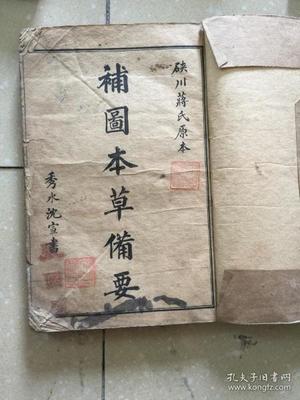 硤川蔣氏原本
補圖本草備要
秀水沈宣書
孔夫子旧书网